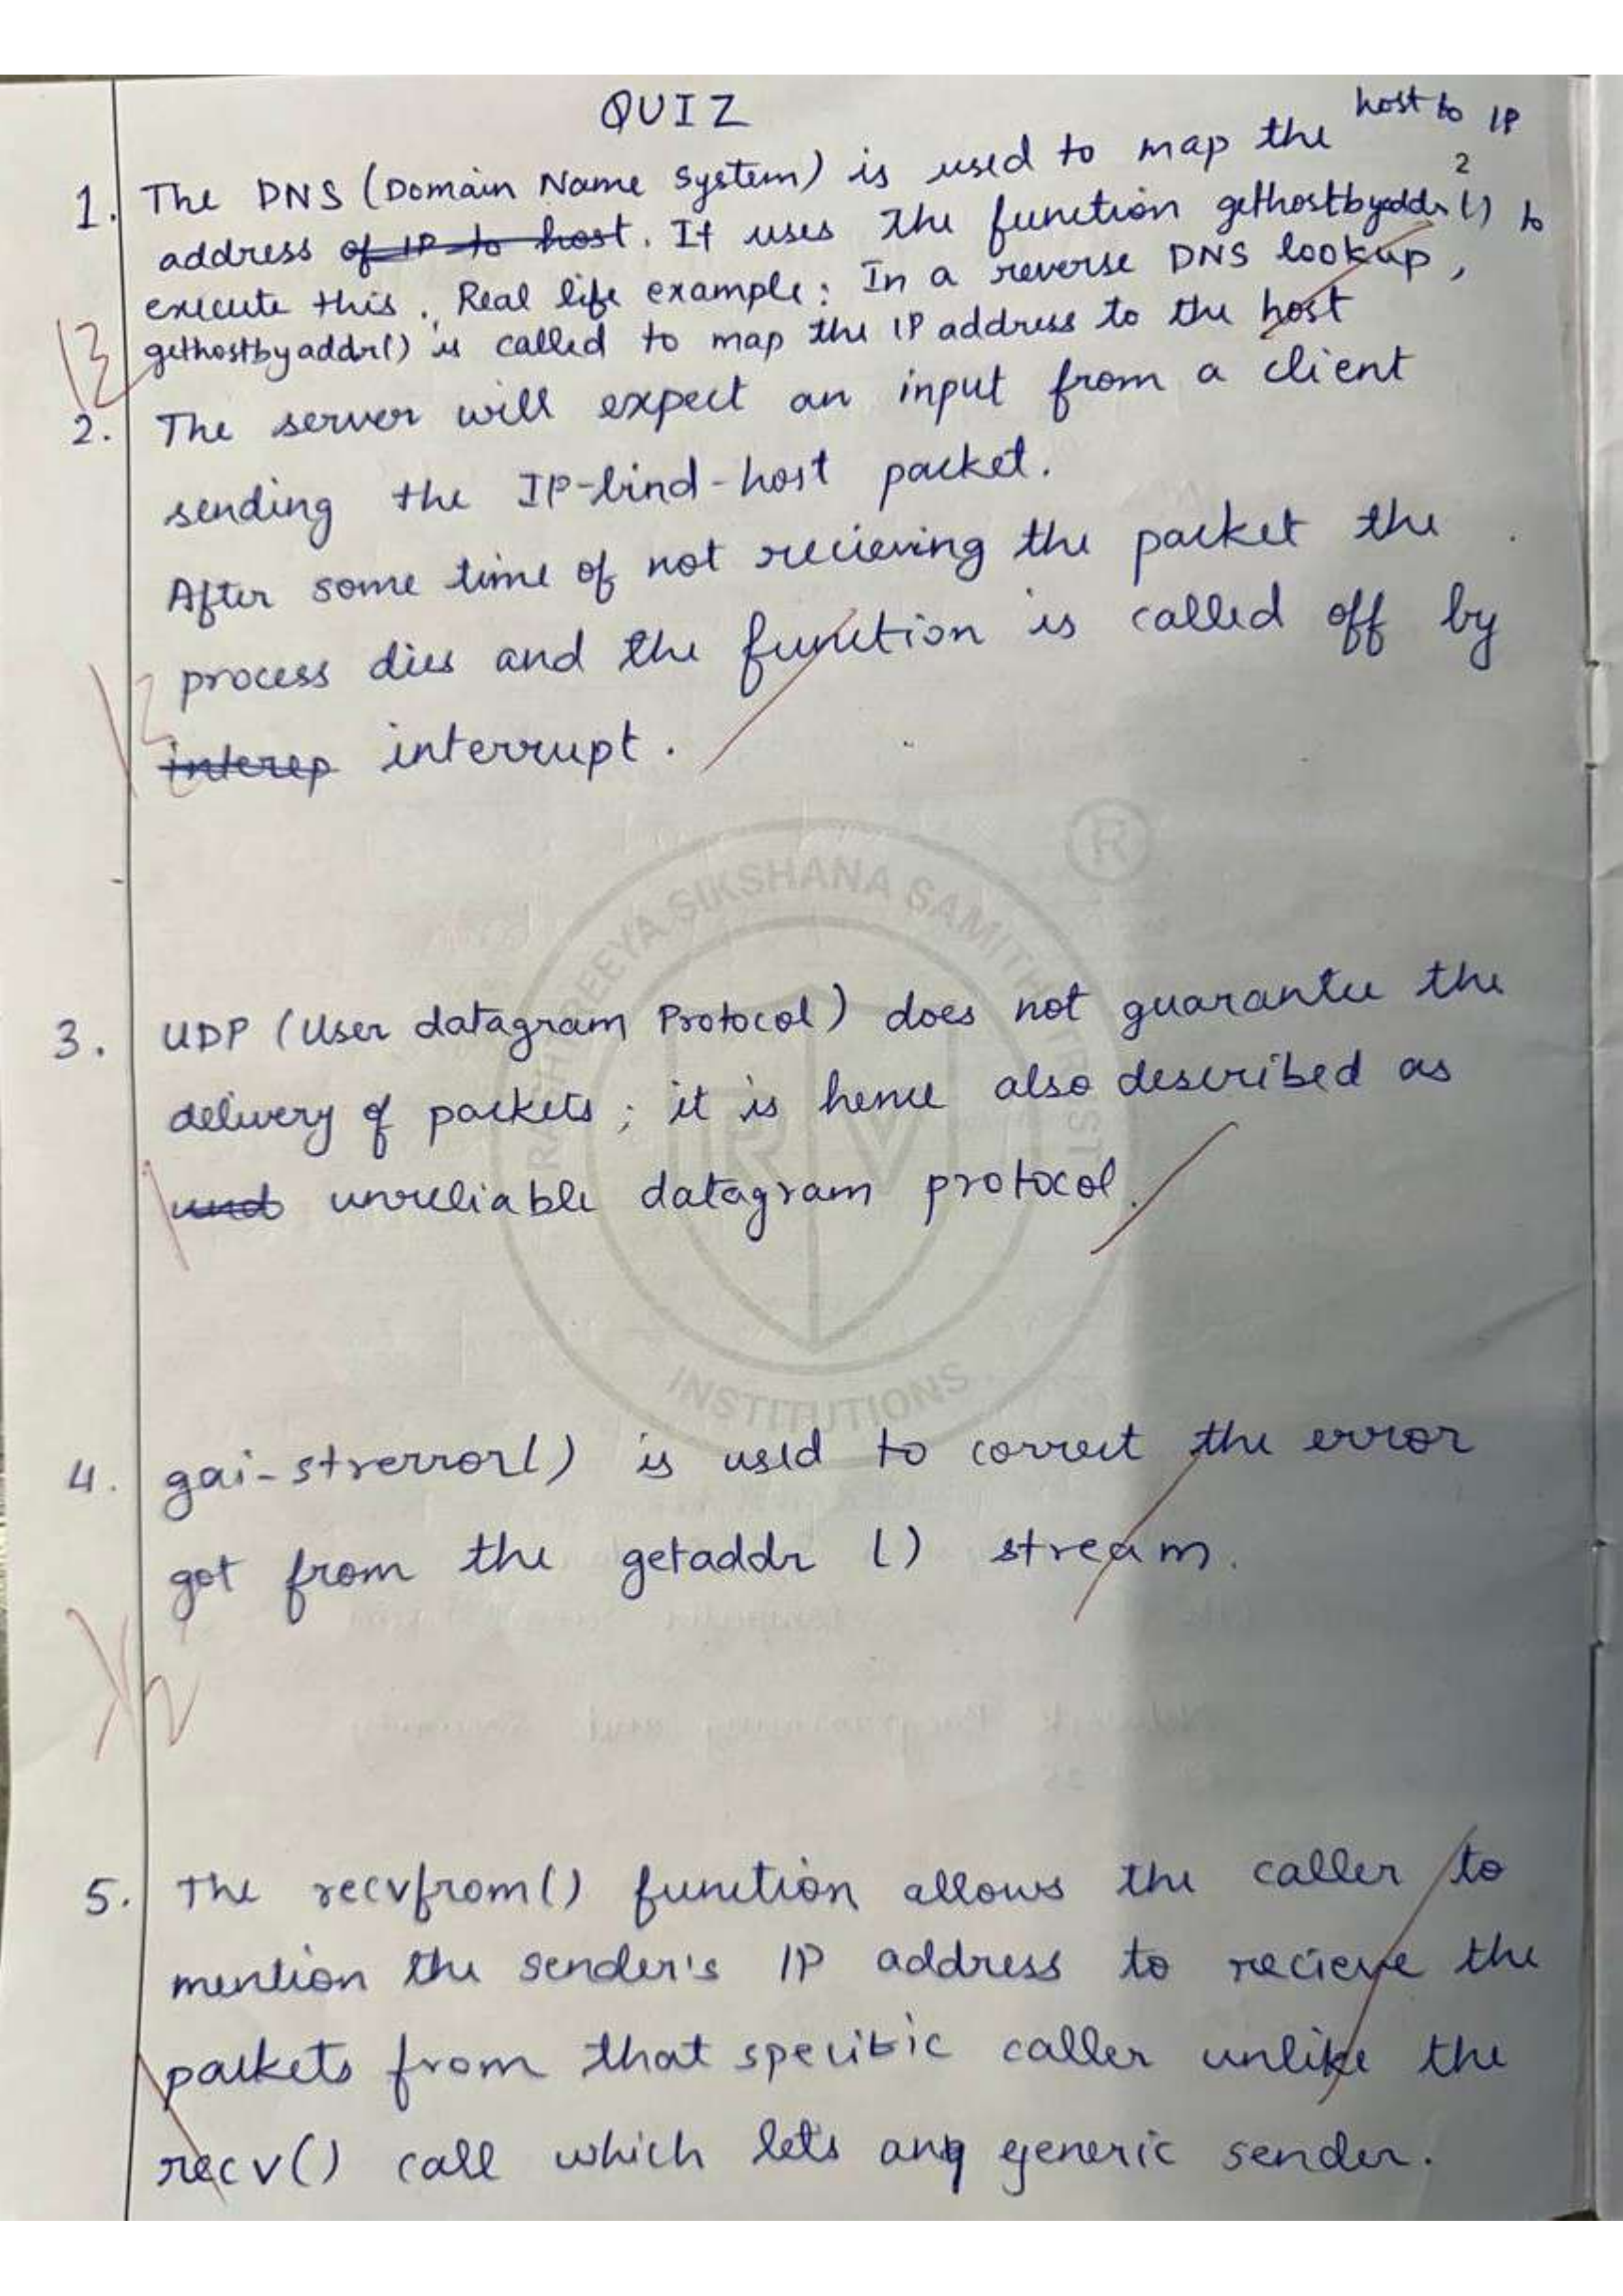 QUIZ
1. The DNS (Domain Name System) is used to map the host to IP
address of IP to host. It uses the function gethostbyaddr2() to
execute this. Real life example: In a reverse DNS lookup,
gethostbyaddr() is called to map the IP address to the host
2. The server will expect an input from a client
sending the IP-bind-host packet.
After some time of not recieving the packet the
process dies and the function is called off by
interep interrupt.
RASHTREEYA SIKSHANA SAMITHI TRUST
R
RV
INSTITUTIONS
3. UDP (User datagram Protocol) does not guarantee the
delivery of packets; it is hence also described as
und unreliable datagram protocol.
4. gai-strerror() is used to correct the error
got from the getaddr () stream.
5. The recvfrom() function allows the caller to
mention the sender's IP address to recieve the
packets from that specific caller unlike the
recv() call which lets any generic sender.